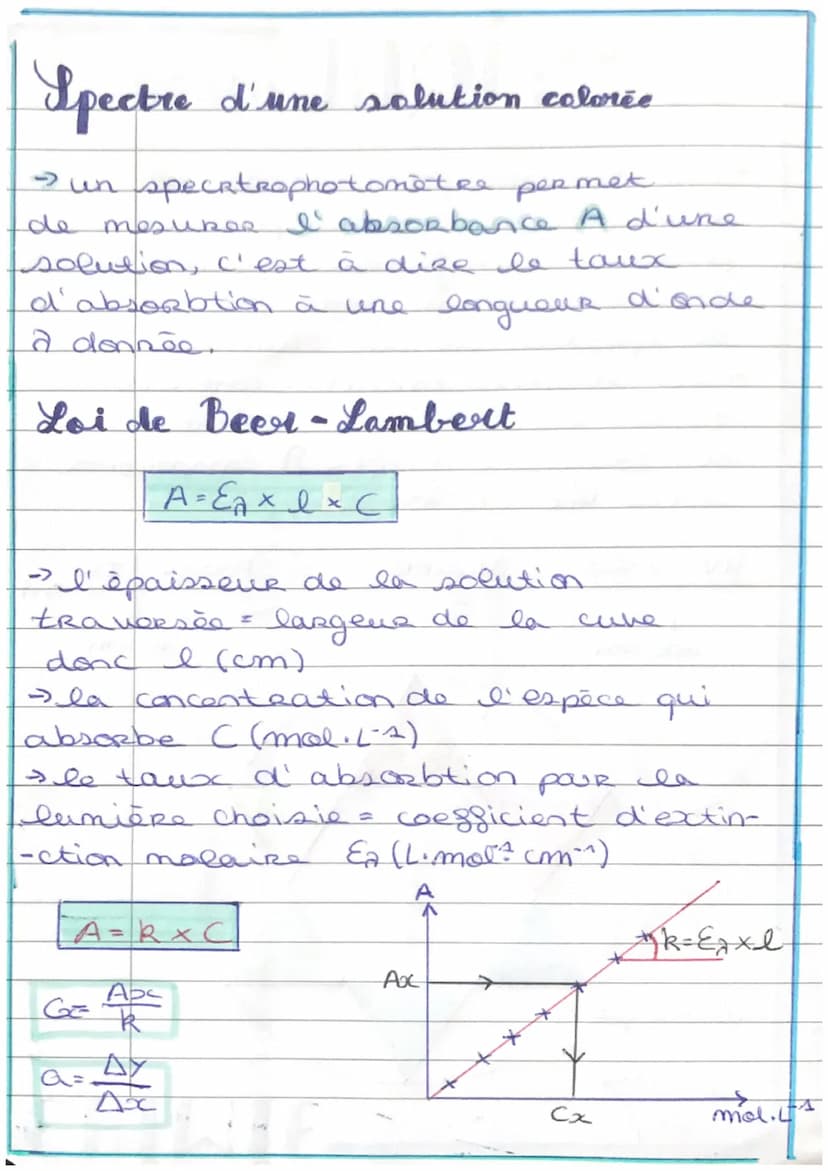 Spectre d'une solution colorée
→ un specrtrophotomètre permet
de mesurer l'absorbance A d'une
solution, c'est à dire le taux
d'absorbtion à une longueur d'onde
λ donnée.
Loi de Beer-Lambert
A = Ɛλ × l × C
→ l'épaisseur de la solution
traversée = largeur de la cuve
donc l (cm)
→ la concentration de l'espèce qui
absorbe C (mol.L⁻¹)
→ le taux d'absorbtion pour la
lumière choisie = coefficient d'extin-
-ction molaire Ɛλ (L.mol⁻¹ cm⁻¹)
A
A = k × C
k = Ɛλ × l
Ax
Cx = Ax/k
a = Δy/Δx
Cx
mol.L⁻¹